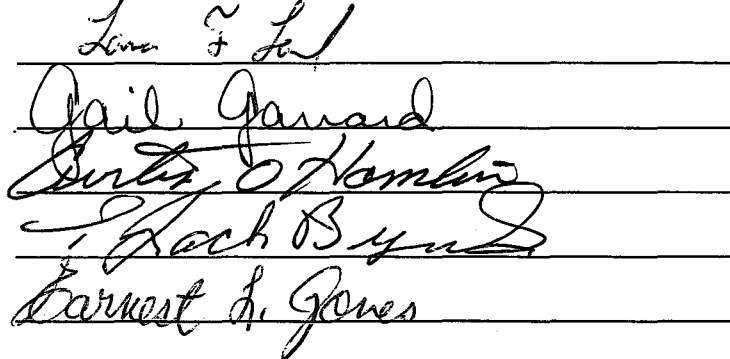 F
Gail Garrard
Curtis O Hamlin
T Zach Bynum
Earnest L. Jones